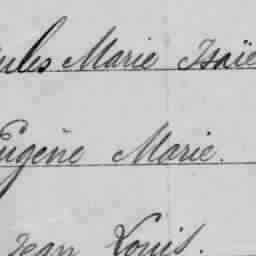 Jules Marie Isaïe
Eugène Marie.
Jean Louis.